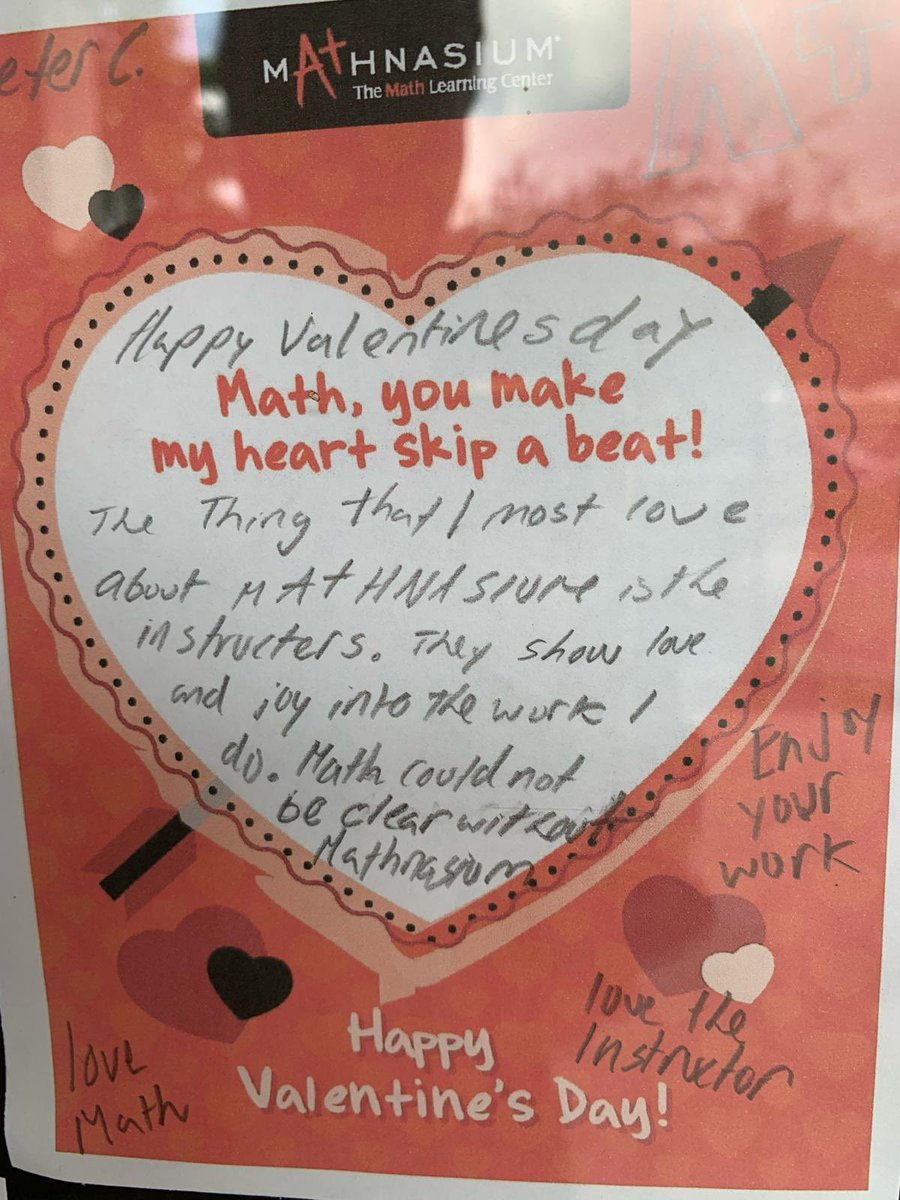 eter C.
MATHNASIUM®
The Math Learning Center
A+
Happy Valentines day
Math, you make
my heart skip a beat!
The Thing that I most love
about MATHNASIUM is the
instructers. They show love
and joy into the work I
do. Math could not
be clear without
Mathnasium
Enjoy
your
work
love the
Instructor
love
Math
Happy
Valentine's Day!